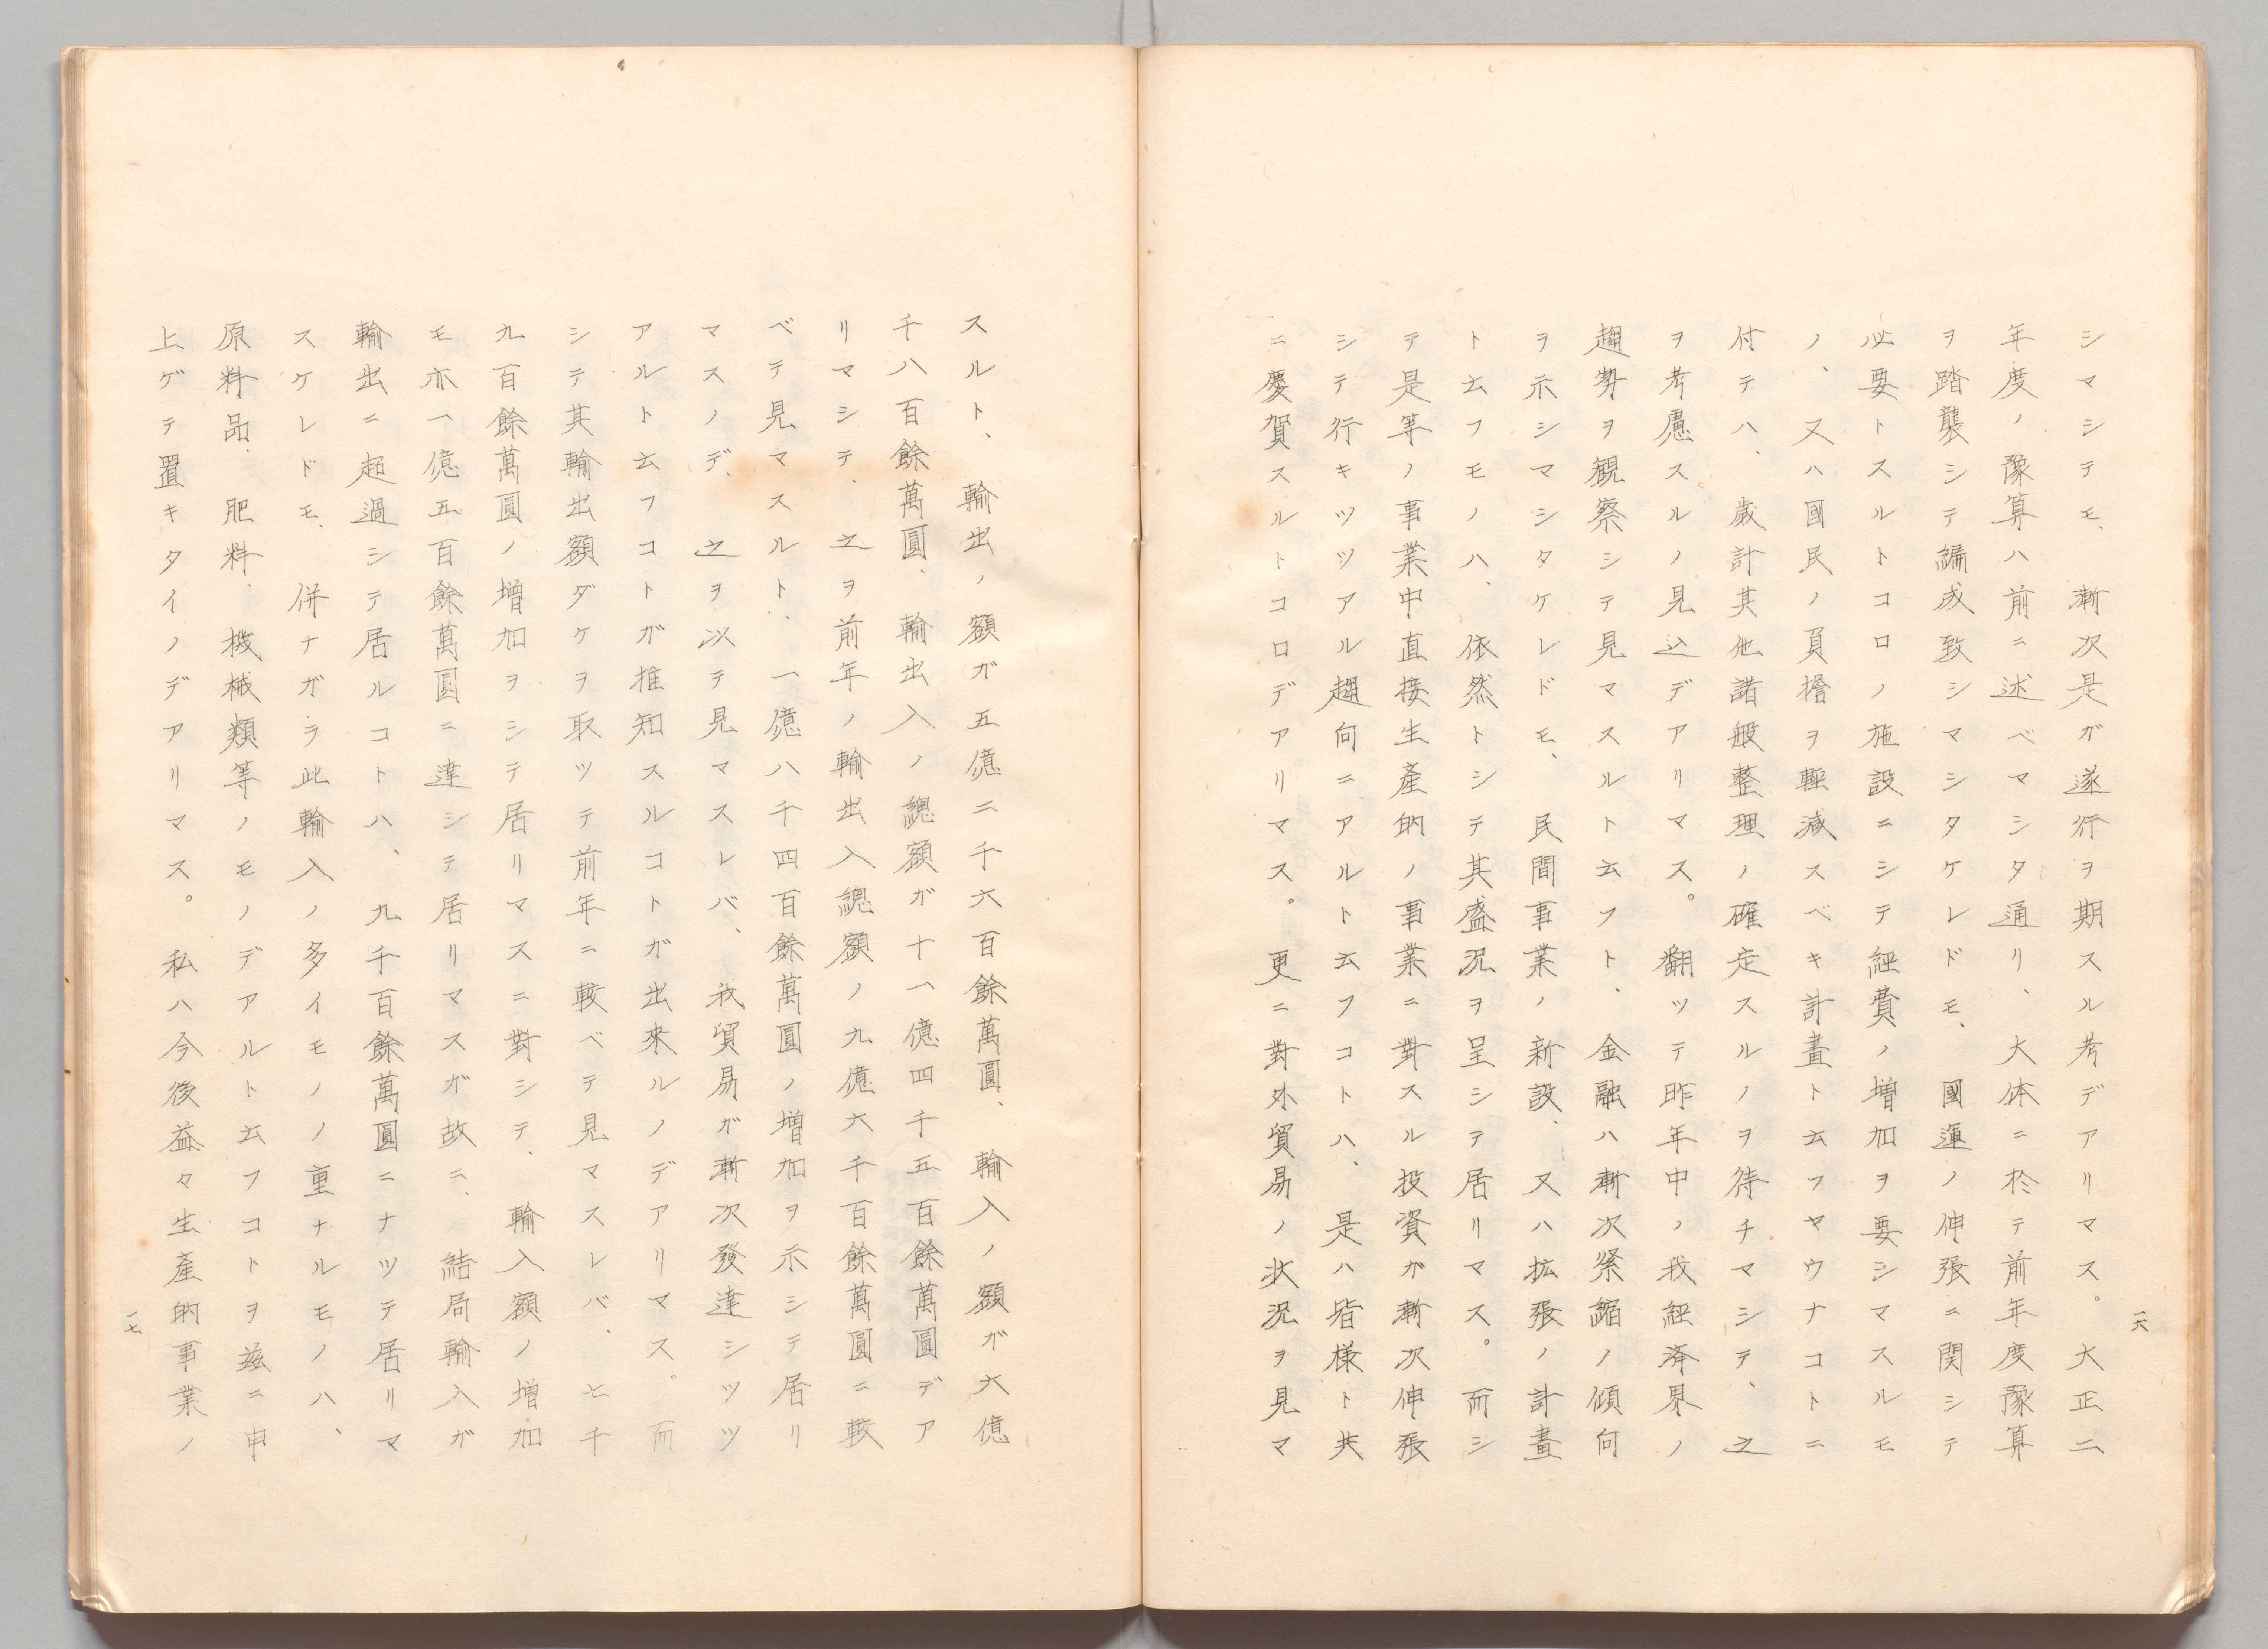 一六
シマシテモ、漸次是ガ遂行ヲ期スル考デアリマス。大正二
年度ノ豫算ハ前ニ述ベマシタ通リ、大体ニ於テ前年度豫算
ヲ踏襲シテ編成致シマシタケレドモ、國運ノ伸張ニ関シテ
必要トスルトコロノ施設ニシテ経費ノ増加ヲ要シマスルモ
ノ、又ハ國民ノ負擔ヲ輕減スベキ計畫ト云フヤウナコトニ
付テハ、歳計其他諸般整理ノ確定スルノヲ待チマシテ、之
ヲ考慮スルノ見込デアリマス。翻ツテ昨年中ノ我経済界ノ
趨勢ヲ観察シテ見マスルト云フト、金融ハ漸次緊縮ノ傾向
ヲ示シマシタケレドモ、民間事業ノ新設、又ハ拡張ノ計畫
ト云フモノハ、依然トシテ其盛況ヲ呈シテ居リマス。而シ
テ是等ノ事業中直接生產的ノ事業ニ對スル投資ガ漸次伸張
シテ行キツツアル趨向ニアルト云フコトハ、是ハ皆様ト共
ニ慶賀スルトコロデアリマス。更ニ對外貿易ノ状況ヲ見マ
スルト、輸出ノ額ガ五億二千六百餘萬圓、輸入ノ額ガ六億
千八百餘萬圓、輸出入ノ總額ガ十一億四千五百餘萬圓デア
リマシテ、之ヲ前年ノ輸出入總額ノ九億六千百餘萬圓ニ較
ベテ見マスルト、一億八千四百餘萬圓ノ増加ヲ示シテ居リ
マスノデ、之ヲ以テ見マスレバ、我貿易ガ漸次發達シツツ
アルト云フコトガ推知スルコトガ出來ルノデアリマス。而
シテ其輸出額ダケヲ取ツテ前年ニ較ベテ見マスレバ、七千
九百餘萬圓ノ増加ヲシテ居リマスニ對シテ、輸入額ノ増加
モ亦一億五百餘萬圓ニ達シテ居リマスガ故ニ、結局輸入ガ
輸出ニ超過シテ居ルコトハ、九千百餘萬圓ニナツテ居リマ
スケレドモ、併ナガラ此輸入ノ多イモノノ重ナルモノハ、
原料品、肥料、機械類等ノモノデアルト云フコトヲ茲ニ申
上ゲテ置キタイノデアリマス。私ハ今後益々生產的事業ノ
一七